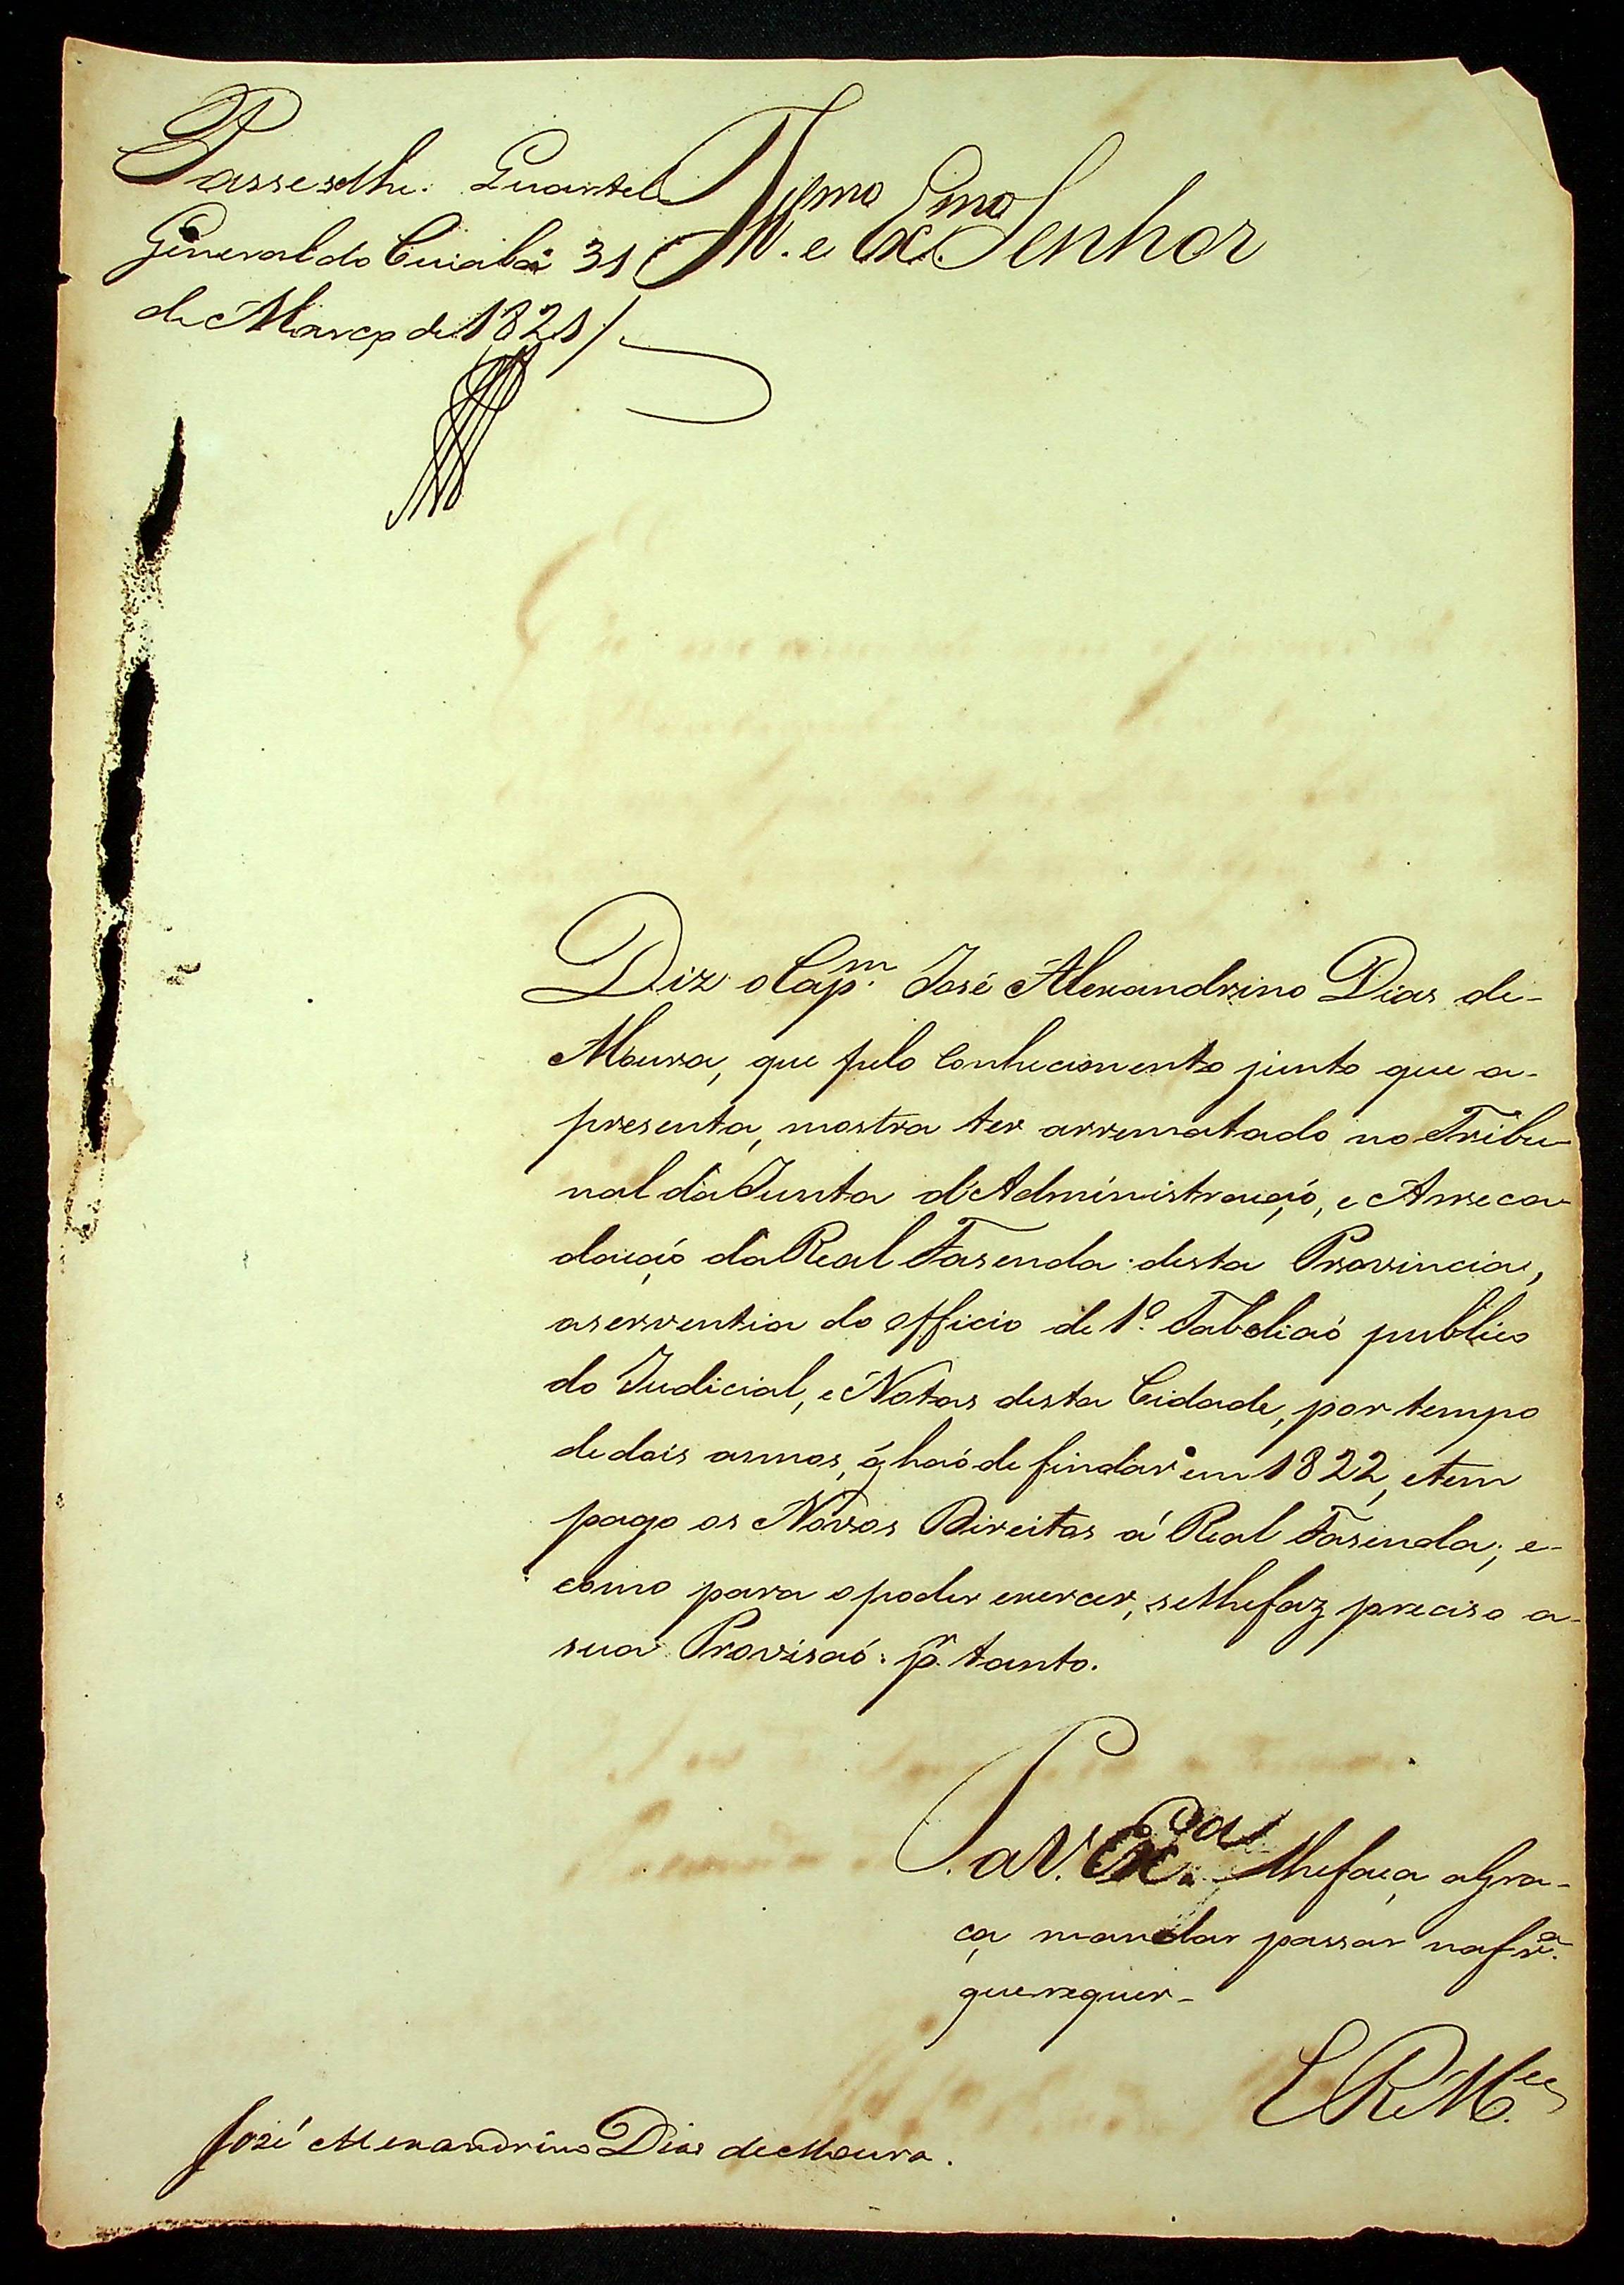 Passeselhe. Quartel
General do Cuiabá 31
de Março de 1821/
Illmo. e Exmo. Senhor
Diz o Capm. José Alexandrino Dias de-
Moura, que pelo Conhecimento junto que a-
presenta, mostra ter arrematado no Tribu-
nal da Junta d'Administração, e Arreca-
dação da Real Fasenda desta Provincia,
aserventia do officio de 1º. Tabeliaõ publico
do Judicial, e Notas desta Cidade, por tempo
de dois annos, q̃ haõ de findar em 1822, etem
pago os Novos Direitos á Real Fasenda; e-
como para o poder exercer, selhefaz preciso a-
sua Provisaõ: pr. tanto.
P. a V. Exca. lhefaça aGra-
ça mandar passar na fra.
querequer-
E R Mce
José Alexandrino Dias de Moura.